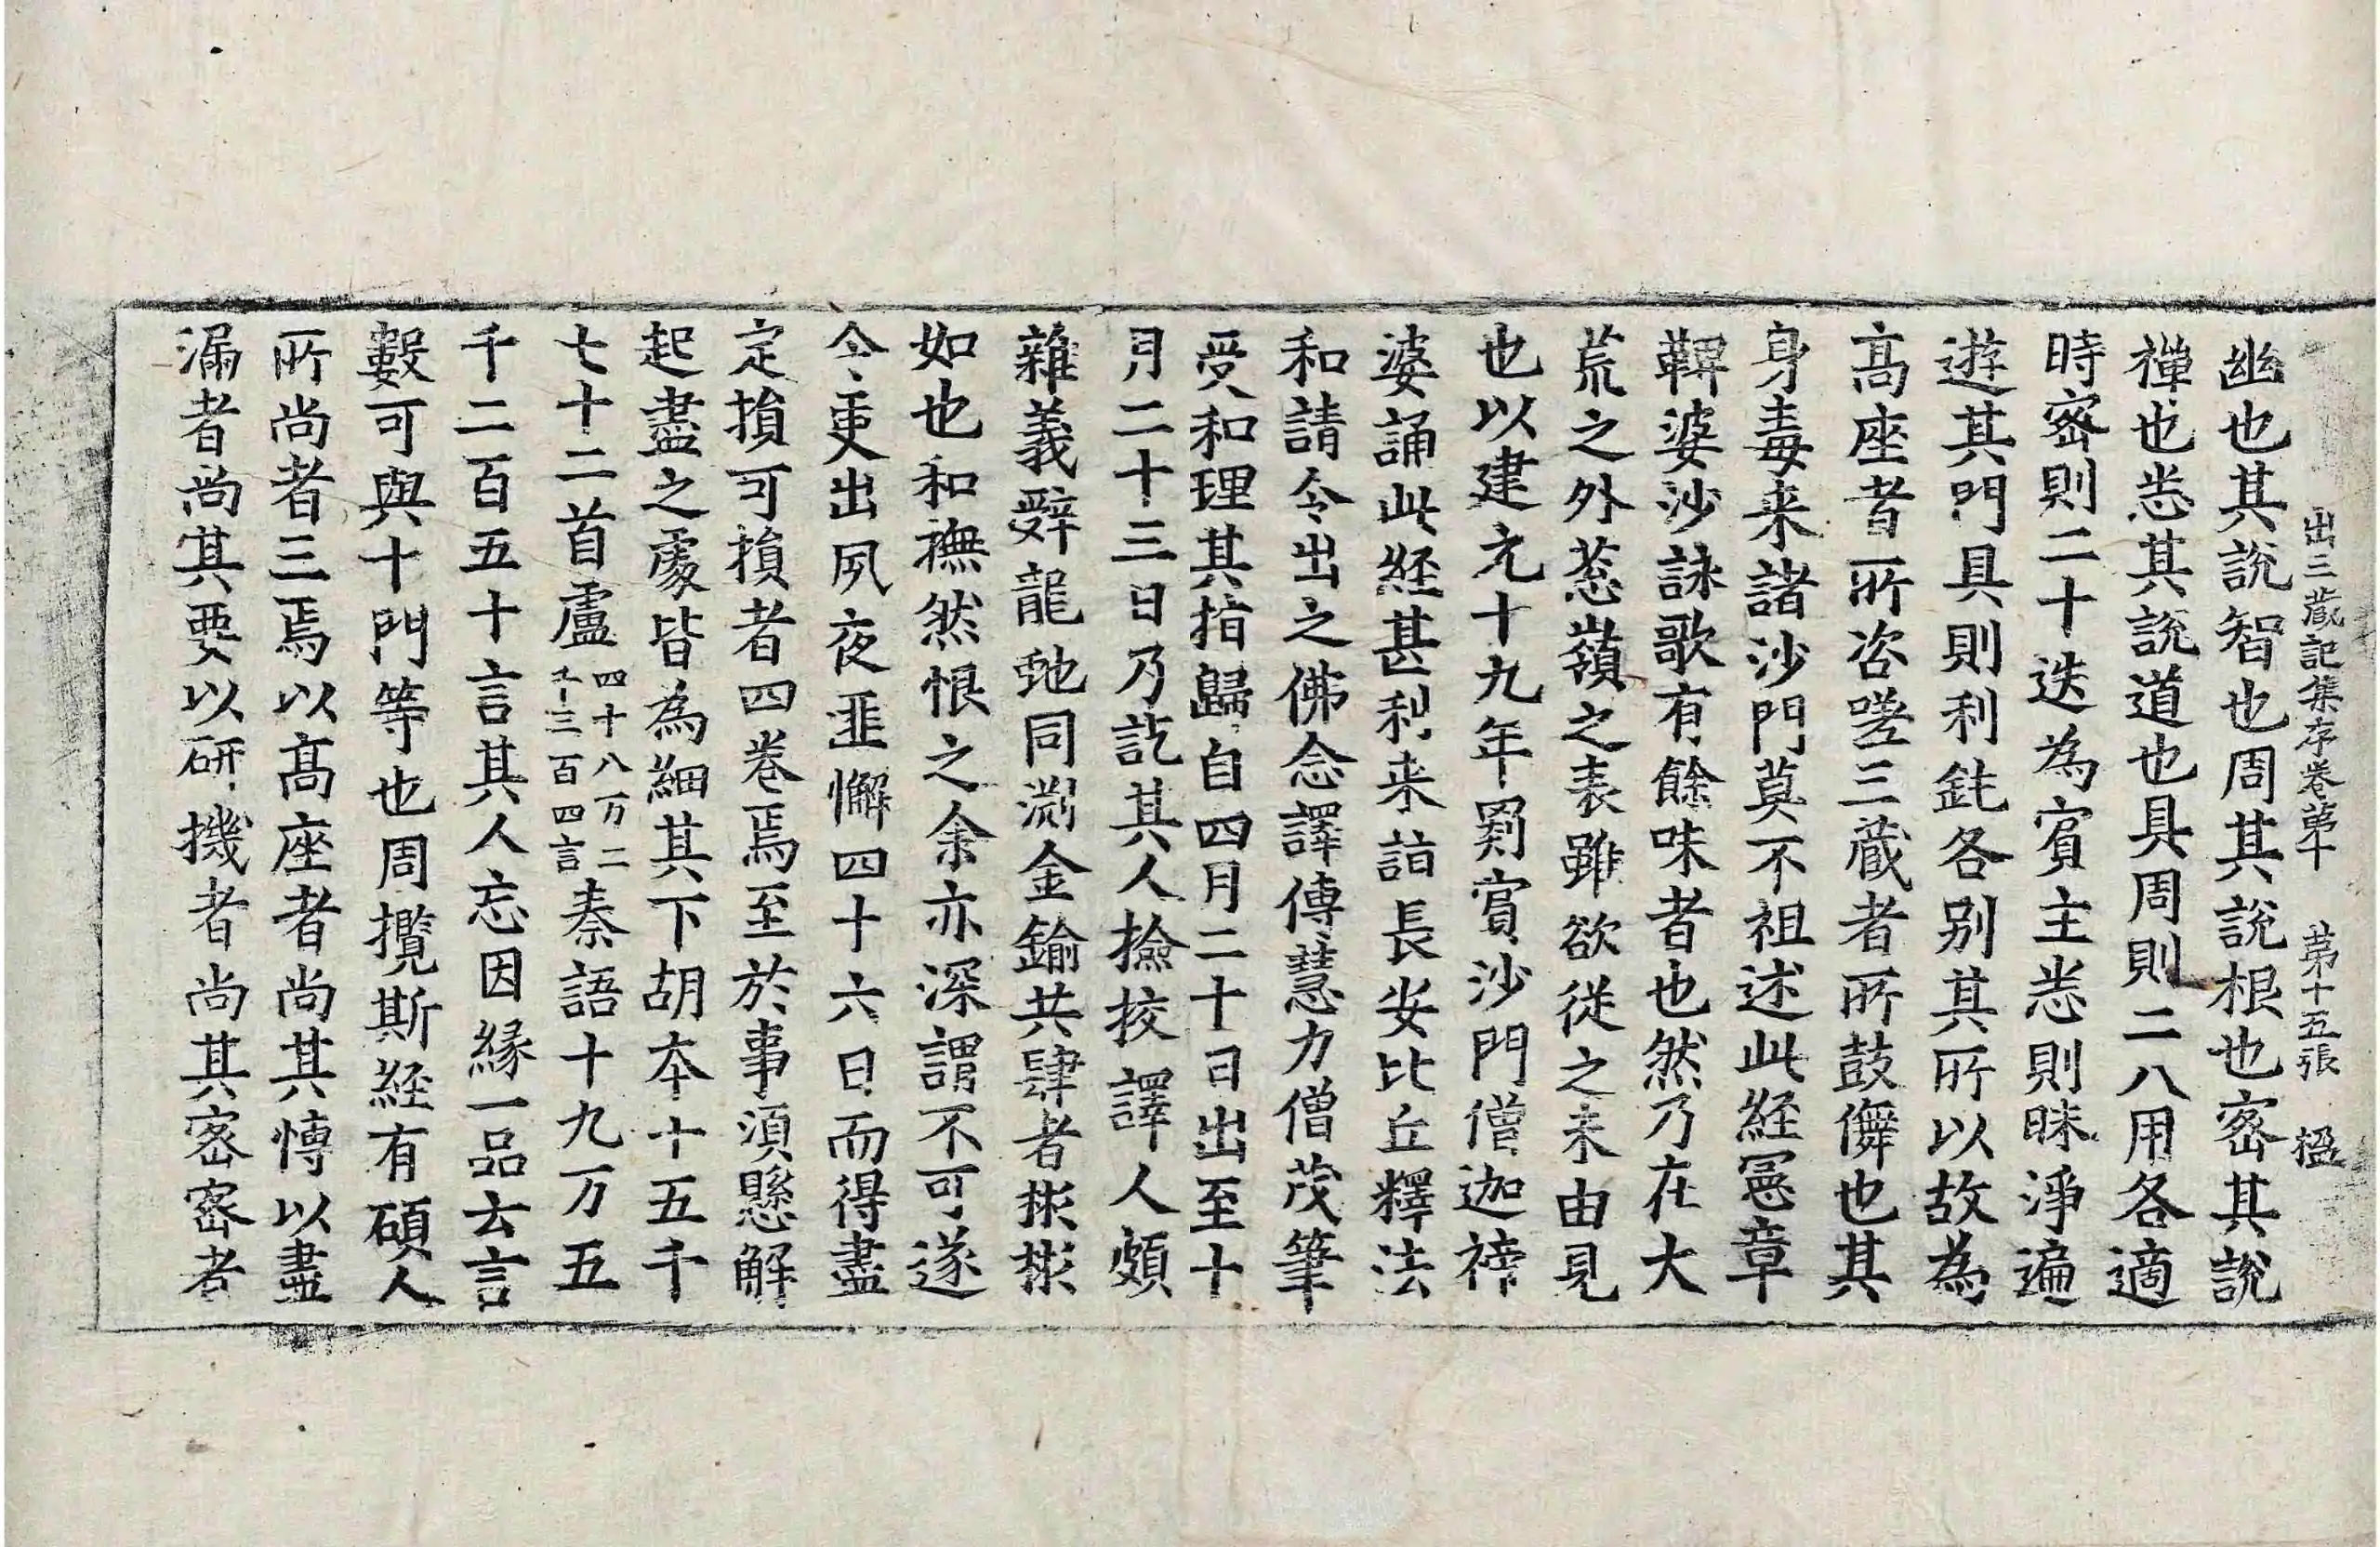 出三藏記集序卷第十　第十五張　楹
幽也其說智也周其說根也密其說
禪也悉其說道也具周則二八用各適
時密則二十迭為賓主悉則昧淨遍
遊其門具則利鈍各別其所以故為
高座者所咨嗟三藏者所鼓儛也其
身毒来諸沙門莫不祖述此經憲章
鞞婆沙詠歌有餘味者也然乃在大
荒之外葱嶺之表雖欲從之未由見
也以建元十九年罽賓沙門僧迦禘
婆誦此經甚利来詣長安比丘釋法
和請令出之佛念譯傳慧力僧茂筆
受和理其指歸自四月二十日出至十
月二十三日乃訖其人撿挍譯人頗
雜義辭龍虵同淵金鍮共肆者彬彬
如也和撫然恨之余亦深謂不可遂
令更出夙夜匪懈四十六日而得盡
定損可損者四卷焉至於事湏懸解
起盡之處皆為細其下胡本十五千
七十二首盧四十八万二千三百四言秦語十九万五
千二百五十言其人忘因縁一品云言
數可與十門等也周攬斯經有碩人
所尚者三焉以高座者尚其愽以盡
漏者尚其要以研機者尚其密密者